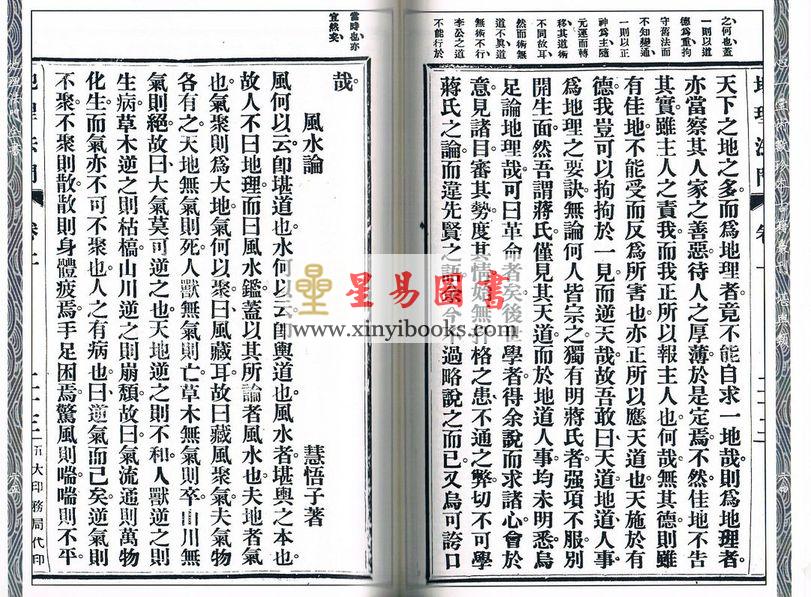 之何也蓋
一則以道
德爲重拘
守舊法而
不知變通
一則以正
神爲主隨
元運而轉
移其道術
不同故耳
然而術無
道不異道
無術不行
李公之道
不能行於
天下之地之多而爲地理者竟不能自求一地哉則爲地理者
亦當察其人家之善惡待人之厚薄於是定焉不然佳地不告
其實雖主人之責我而我正所以報主人也何哉無其德則雖
有佳地不能受而反爲所害也亦正所以應天道也天施於有
德我豈可以拘拘於一見而逆天哉故吾敢曰天道地道人事
爲地理之要訣無論何人皆宗之獨有明蔣氏者强項不服別
開生面然吾謂蔣氏僅見其天道而於地道人事均未明悉烏
足論地理哉可曰革命者矣後世學者得余說而求諸心會於
意見諸目審其勢度其情始無扞格之患不通之弊切不可學
蔣氏之論而違先賢之語余今不過略說之而已又烏可誇口
當時也亦
宜然矣
哉
風水論 慧悟子著
風何以云卽堪道也水何以云卽輿道也風水者堪輿之本也
故人不曰地理而曰風水鑑蓋以其所論者風水也夫地者氣
也氣聚則爲大地氣何以聚曰風藏耳故曰藏風聚氣夫氣物
各有之天地無氣則死人獸無氣則亡草木無氣則卒山川無
氣則絕故曰大氣莫可逆之也天地逆之則不和人獸逆之則
生病草木逆之則枯槁山川逆之則崩頹故曰氣流通則萬物
化生而氣亦不可不聚也人之有病也曰逆氣而已矣逆氣則
不聚不聚則散散則身體疲焉手足困焉驚風則喘喘則不平
卷一
二十三
五大印務局代印
星易圖書
www.xinyibooks.com